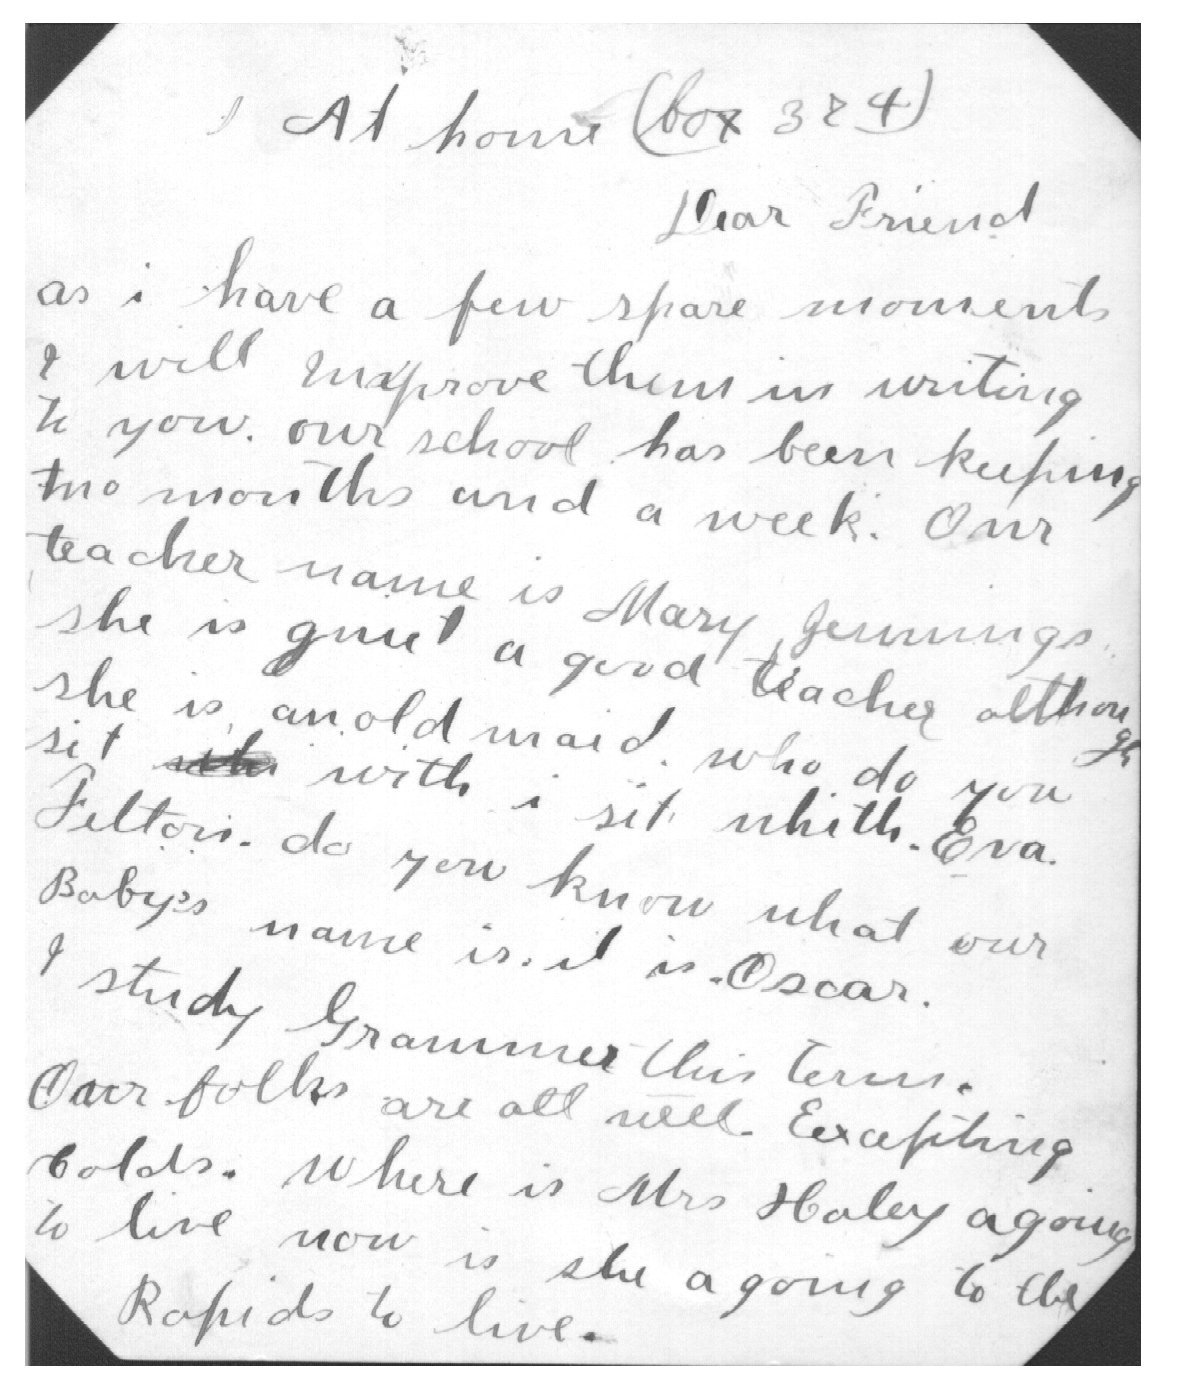 At home (box 324)
Dear Friend
as i have a few spare moments
I will Improve them in writing
to you. our school has been keeping
two months and a week. Our
teacher name is Mary Jennings
she is quiet a good teacher althou
gh
she is an old maid. who do you
sit with i sit whith. Eva.
Felton. do you know what our
Babys name is. it is. Oscar.
I study Grammer this term.
Our folks are all well. Excepting
colds. Where is Mrs Haley agoing
to live now is she agoing to the
Rapids to live.